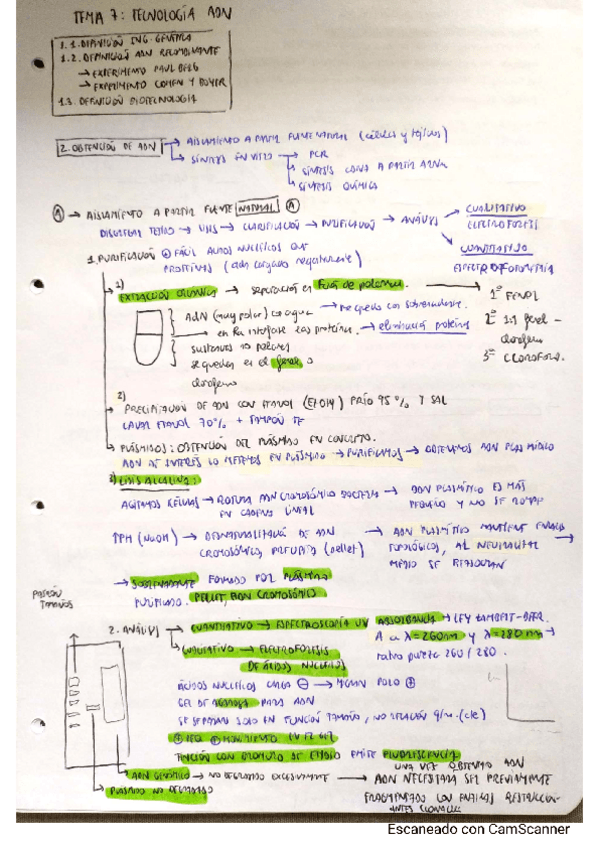 TEMA 7: TECNOLOGÍA ADN
1.1. DEFINICIÓN ING. GENÉTICA
1.2. DEFINICIÓN ADN RECOMBINANTE
→ EXPERIMENTO PAUL BERG
→ EXPERIMENTO COHEN Y BOYER
1.3. DEFINICIÓN BIOTECNOLOGÍA
2. OBTENCIÓN DE ADN → AISLAMIENTO A PARTIR FUENTE NATURAL (células y tejidos)
→ SÍNTESIS EN VITRO → PCR
→ SÍNTESIS A PARTIR ARNm
→ SÍNTESIS QUÍMICA
Ⓐ → AISLAMIENTO A PARTIR FUENTE NATURAL Ⓐ
DISGREGAR TEJIDO → LISIS → CLARIFICACIÓN → PURIFICACIÓN → ANÁLISIS → CUALITATIVO
ELECTROFORESIS
CUANTITATIVO
1. PURIFICACIÓN ⊕ FÁCIL ÁCIDOS NUCLEICOS QUE
PROTEÍNAS (adn cargado negativamente)
1)
EXTRACCIÓN ORGÁNICA → separación en función de polaridad.
1º FENOL
2º 1:1 fenol-
cloroformo
3º CLOROFORMO.
ADN (muy polar) en agua → me quedo con sobrenadante.
en la interfase las proteínas. → eliminación proteína
sustancias no polares
se quedan en el fenol o
cloroformo
2)
PRECIPITACIÓN DE ADN CON ETANOL (EtOH) FRÍO 95% Y SAL
LAVAR ETANOL 70% + TAMPÓN TE
→ PLÁSMIDOS: OBTENCIÓN DEL PLÁSMIDO EN CONCRETO.
ADN DE INTERÉS LO METEMOS EN PLÁSMIDO → PURIFICAMOS → OBTENEMOS ADN PLASMÍDICO
3) LISIS ALCALINA:
AGITAMOS CÉLULAS → ROTURA ADN CROMOSÓMICO BACTERIA → ADN PLASMÍDICO ES MÁS
EN CADENA LINEAL PEQUEÑO Y NO SE ROMPE
↑PH (NaOH) → DESNATURALIZACIÓN DE ADN → ADN PLASMÍDICO MANTIENE ENLACES
CROMOSÓMICO, PRECIPITA (pellet) TOPOLÓGICOS, AL NEUTRALIZAR →
MEDIO SE REASOCIAN
→ SOBRENADANTE FORMADO POR PLÁSMIDO
PURIFICADO. PELLET, ADN CROMOSÓMICO
PATRÓN
TAMAÑOS
2. ANÁLISIS → CUANTITATIVO → ESPECTROSCOPÍA UV ABSORBANCIA → LEY LAMBERT-BEER.
A a λ=260nm y λ=280 nm →
ratio pureza 260/280.
→ CUALITATIVO → ELECTROFORESIS
DE ÁCIDOS NUCLEICOS
ÁCIDOS NUCLEICOS CARGA ⊖ → MIGRAN POLO ⊕
GEL DE AGAROSA PARA ADN
SE SEPARAN SOLO EN FUNCIÓN TAMAÑO, NO RELACIÓN q/m (cte)
TINCIÓN CON BROMURO DE ETIDIO EMITE FLUORESCENCIA
UNA VEZ OBTENIDO ADN
ADN GENÓMICO → NO DEGRADADO EXCESIVAMENTE → ADN NECESITARÁ SER PREVIAMENTE
PLÁSMIDO NO DEGRADADO FRAGMENTADO CON ENZIMAS RESTRICCIÓN
ANTES CLONACIÓN
Escaneado con CamScanner